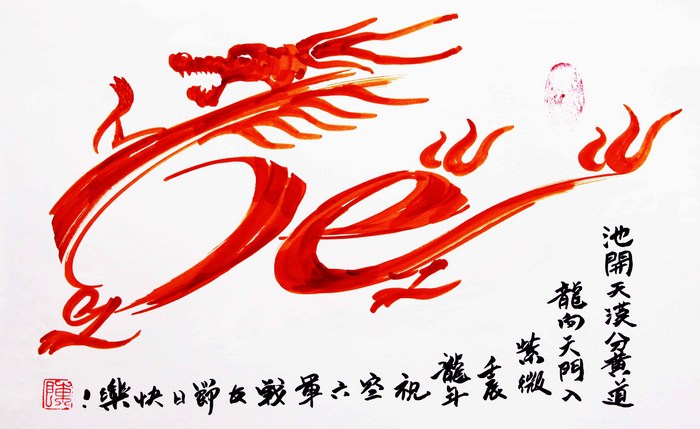 池開天漢分黃道
龍向天門入
紫微
壬辰
龍年
祝空六軍戰友節日快樂！
陳